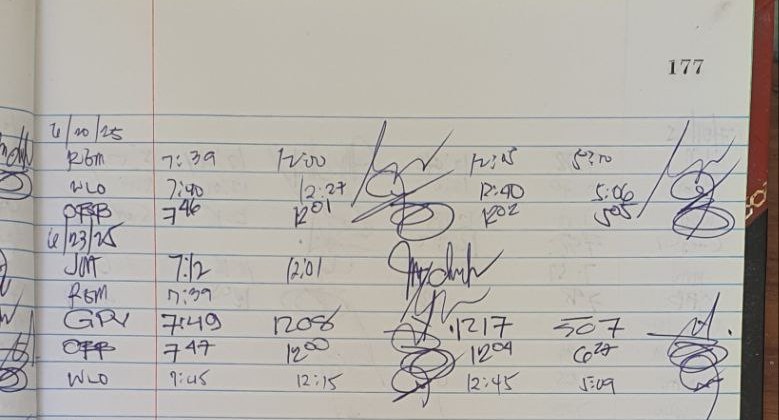 177
6/20/25
RBM 7:39 12:00 12:15 5:10
WLO 7:40 12:27 12:40 5:06
OFB 7 46 12 01 12 02 5 05
6/23/25
JMT 7:12 12:01
RBM 7:39
GPV 7:49 1208 1217 507
OFB 7 47 12 00 12 04 6 27
WLO 7:45 12:15 12:45 5:09